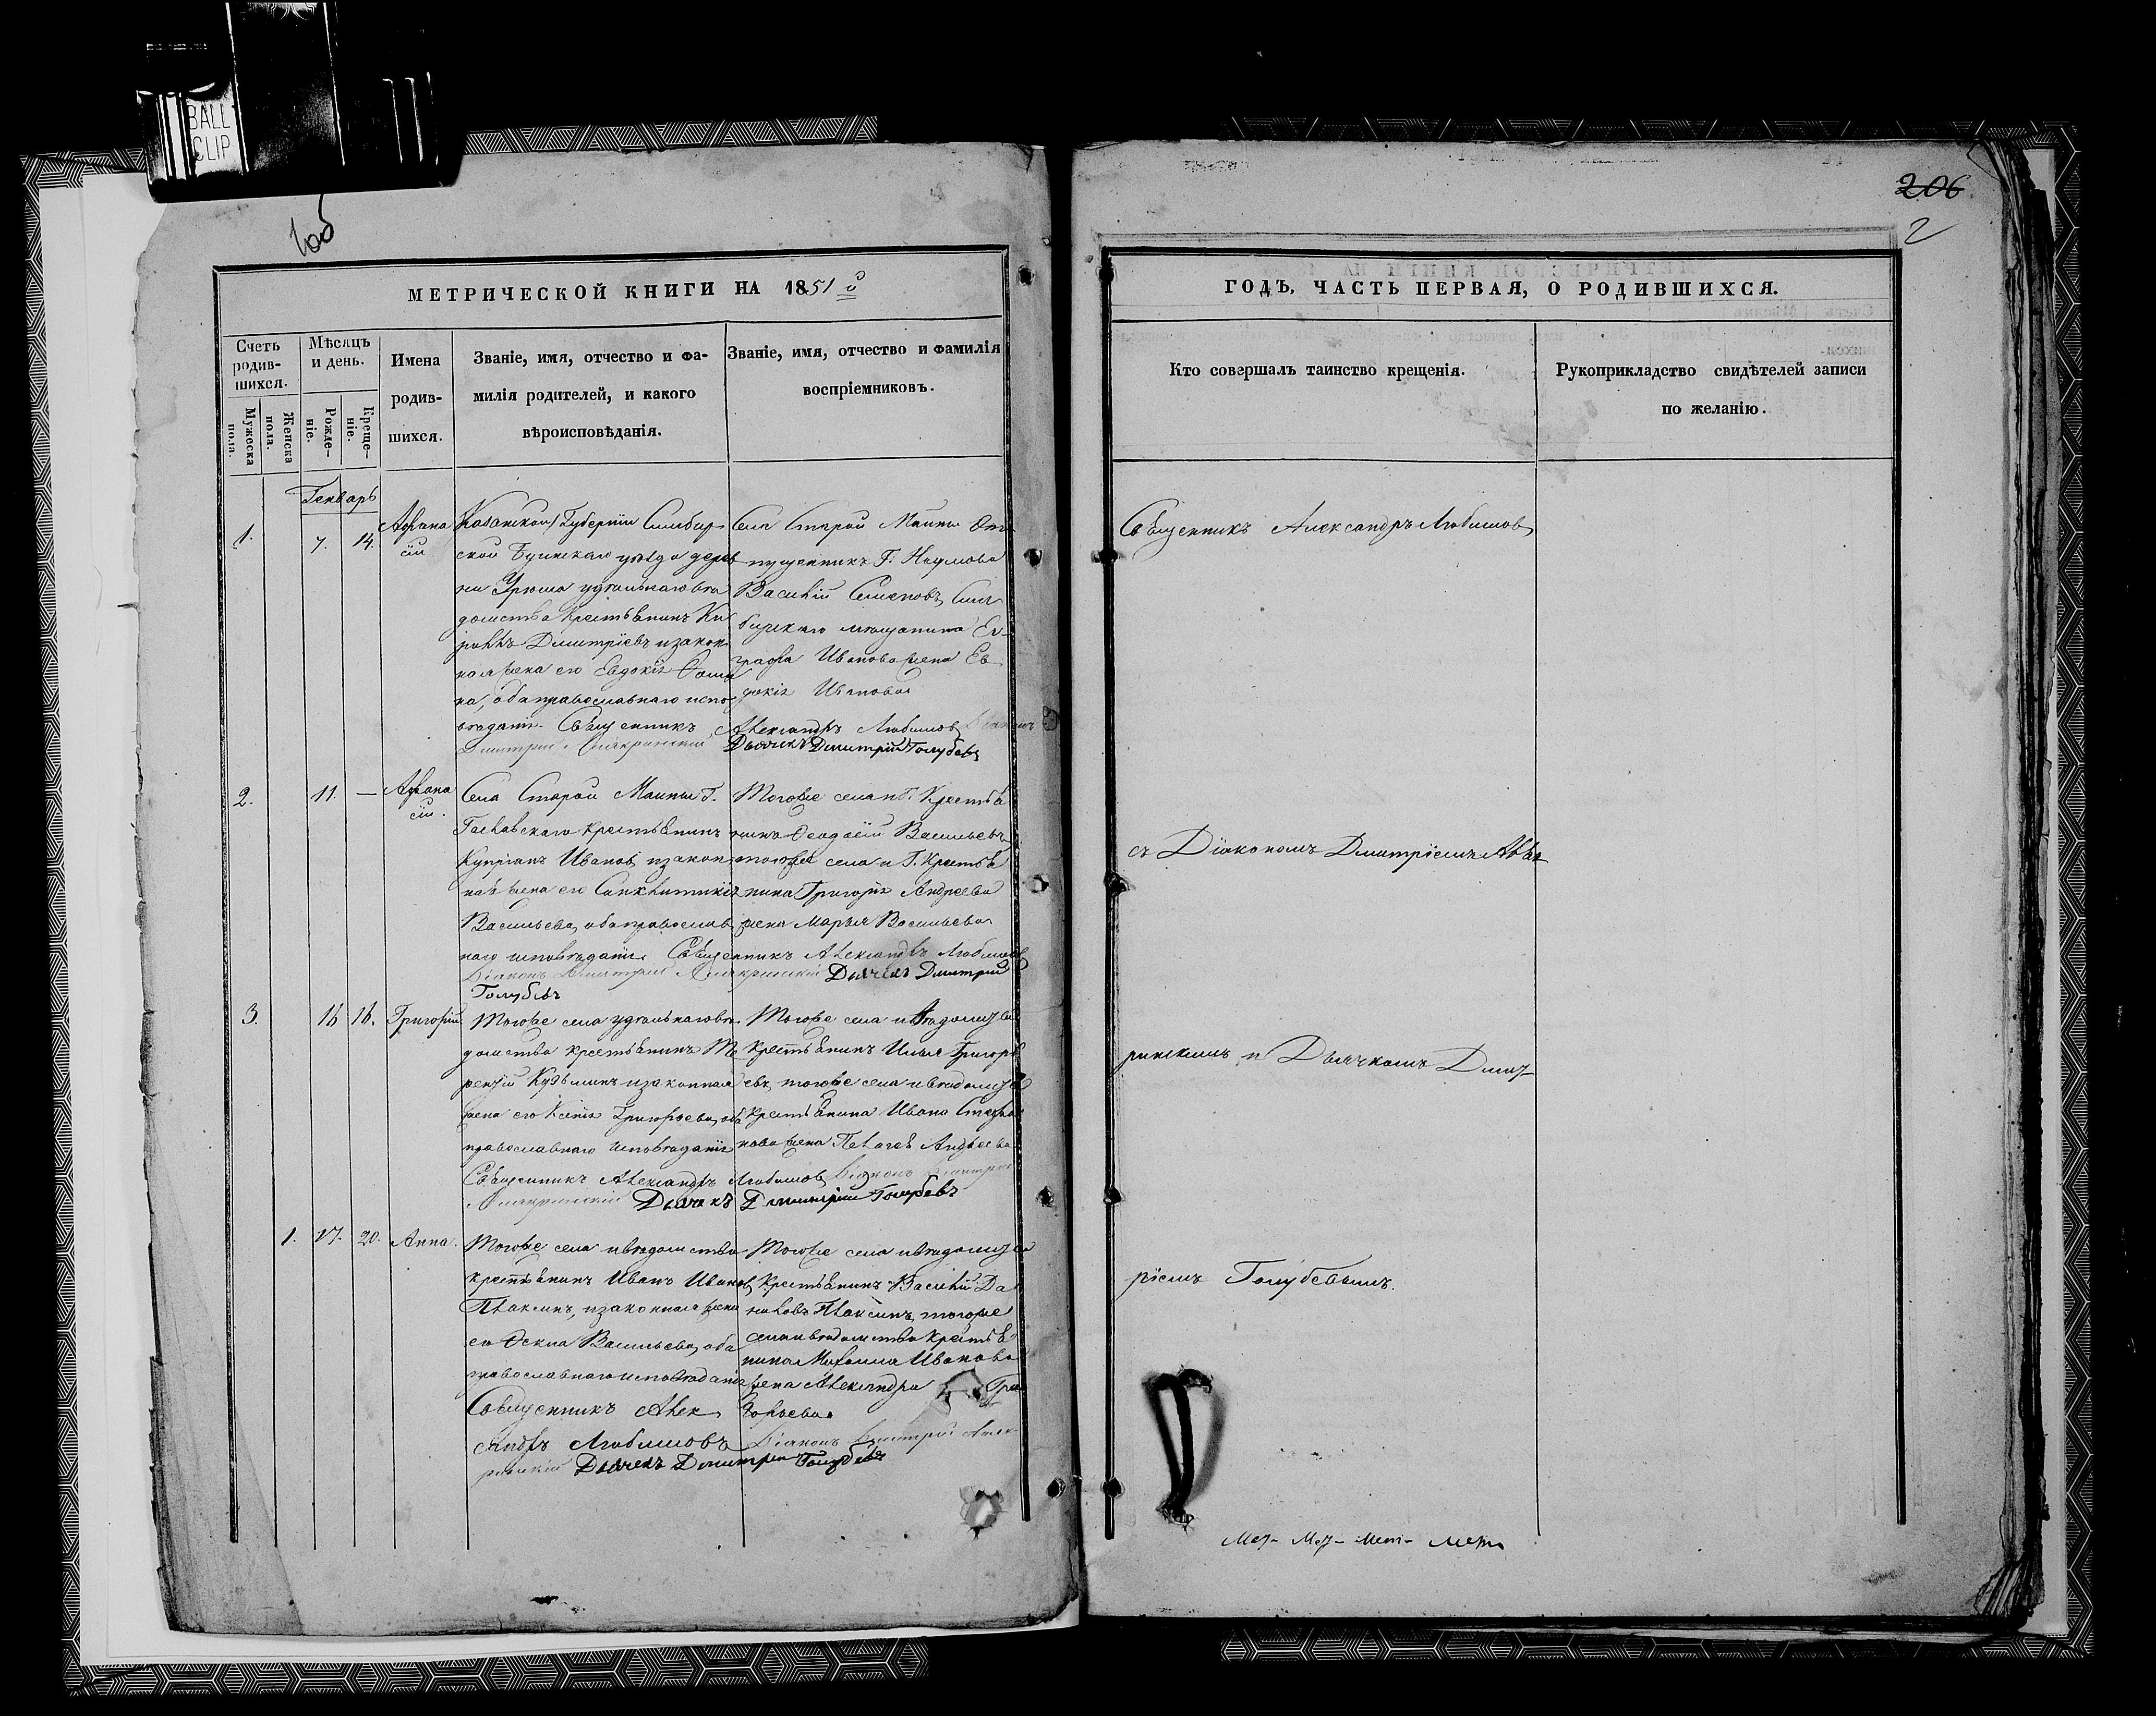 BALL
CLIP
206
2
МЕТРИЧЕСКОЙ КНИГИ НА 1851 й
ГОДЪ, ЧАСТЬ ПЕРВАЯ, О РОДИВШИХСЯ.
Счетъ родив-
шихся.
Мужеска пола.
Женска пола.
Мѣсяцъ
и день.
Рожде-
ніе.
Креще-
ніе.
Имена
родив-
шихся.
Званіе, имя, отчество и фа-
милія родителей, и какого
вѣроисповѣданія.
Званіе, имя, отчество и фамилія
воспріемниковъ.
Кто совершалъ таинство крещенія.
Рукоприкладство свидѣтелей записи
по желанію.
Генварь
1.
7.
14.
Афана
сій
Казанской Губерніи Симбир-
ской Буинскаго уѣзда дерев
ни удѣльнаго вѣ
домства крестьянинъ Ки
риллъ Дмитріевъ и закон
ная жена его Евдокія Ѳоми
на, оба православнаго испо
вѣданія. Священникъ Александръ Любимовъ Діаконъ
Дмитрій Дьячекъ Дмитрій Голубевъ
Села Старой Майны От
пущенникъ Г. Наумова
Василій Семеновъ, Сим
бирскаго мѣщанина Ев
графа Иванова жена Ев
докія Иванова
2.
11.
—
Афана
сій.
Села Старой Майны Г.
крестьянинъ
Купріанъ Ивановъ и закон
ная жена его
Васильева, оба православ
наго исповѣданія. Священникъ Александръ Любимовъ
Діаконъ Дмитрій Дьячекъ Дмитрій
Голубевъ
Тогоже села и Г. Крестья
нинъ Ѳеодосій Васильевъ,
тогоже села и Г. Крестья
нина Григорія Андреева
жена Марья Васильева
3.
16
16.
Григорій
Тогоже села удѣльнаго вѣ
домства крестьянинъ Те
рентій Кузьминъ и законная
жена его Ксенія Григорьева, оба
православнаго исповѣданія
Священникъ Александръ Любимовъ Діаконъ Дмитрій
Дьячекъ Дмитрій Голубевъ
Тогоже села и вѣдомства
Крестьянинъ Илья Григорь
евъ, тогоже села и вѣдомства
Крестьянина Ивана Степа
нова жена Пелагея Андреева
1.
17.
20.
Анна.
Тогоже села и вѣдомства
крестьянинъ Иванъ Ивановъ
Плаксинъ, и законная жена
его Ѳекла Васильева, оба
православнаго исповѣданія
Священникъ Алек
сандръ Любимовъ Діаконъ Дмитрій
Дьячекъ Дмитрій Голубевъ
Тогоже села и вѣдомства
Крестьянинъ Василій Да
ниловъ Плаксинъ, тогоже
села и вѣдомства крестья
нина Михаила Иванова
жена Александра Гри
горьева
Священникъ Александръ Любимовъ
съ Діакономъ Дмитріемъ
ринскимъ и Дьячкомъ Дмит
ріемъ Голубевымъ.
Мет- Мет- Мет- Метр